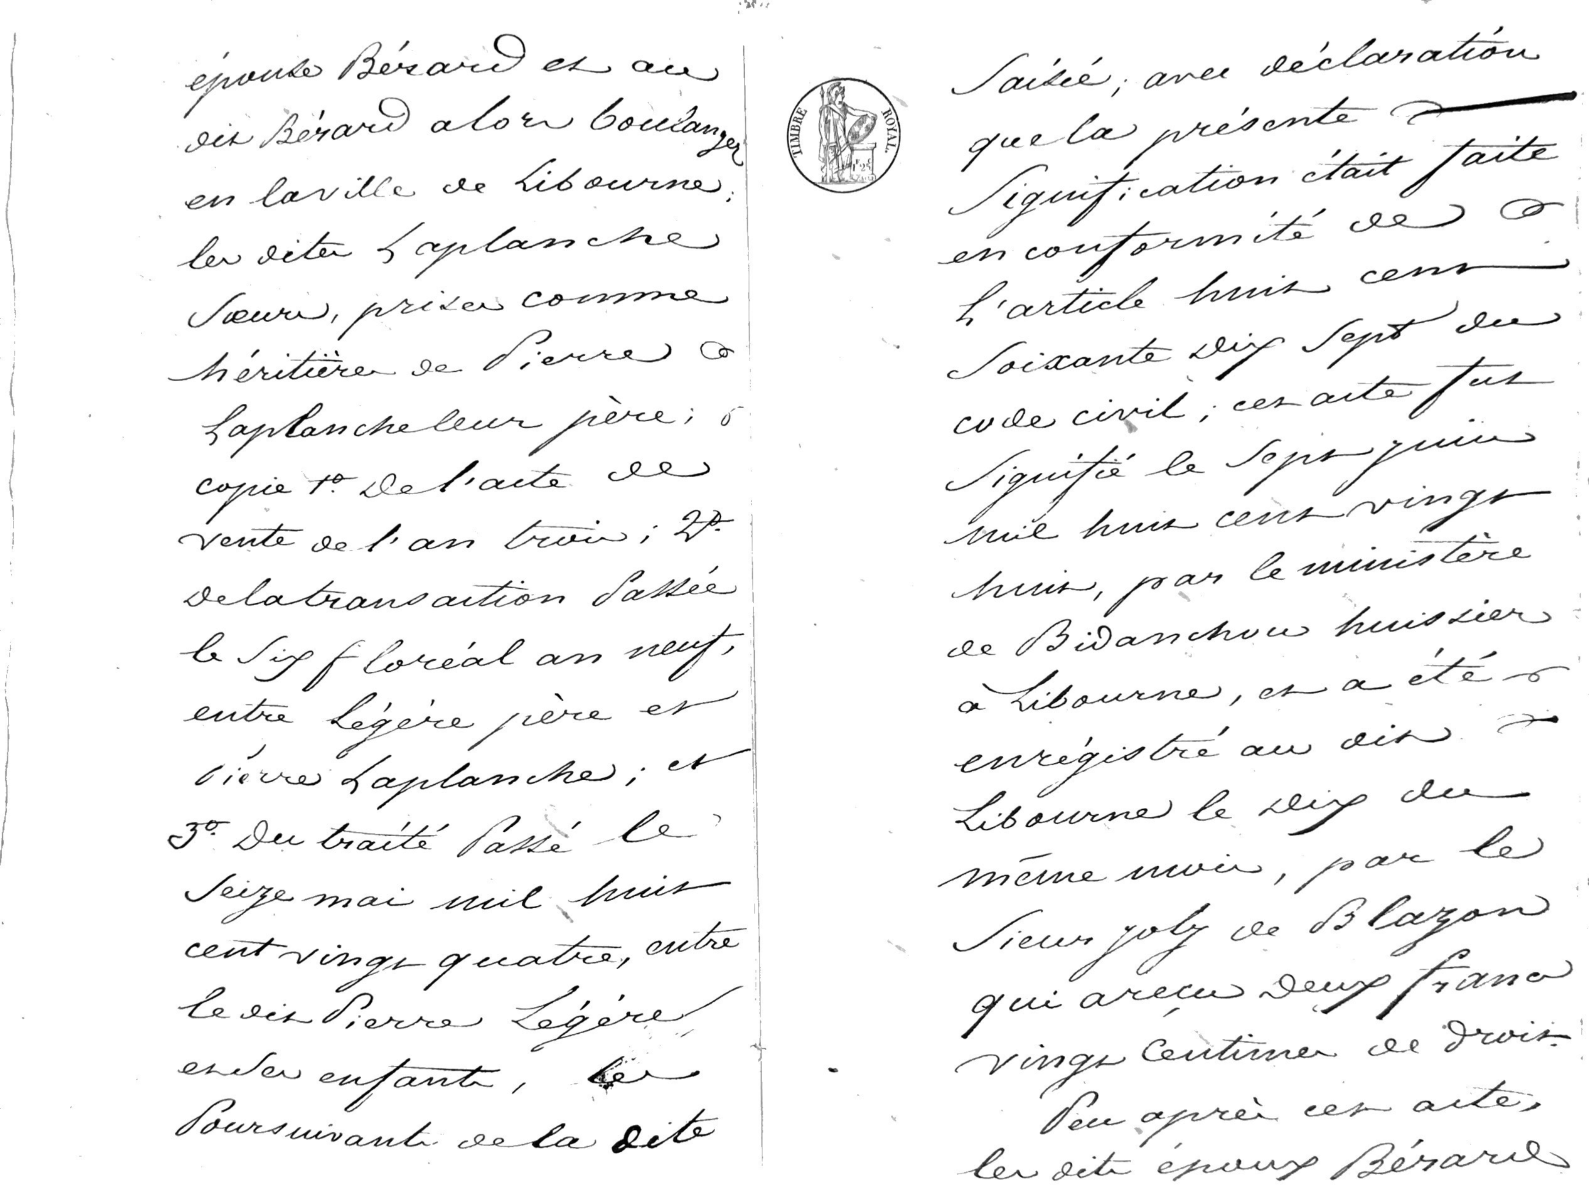 épouse Bérard et au
dit Bérard alors boulanger
en la ville de Libourne;
les dites Laplanche
Sœurs, prises comme
héritières de Pierre
Laplanche leur père;
copie 1º. De l'acte de
vente de l'an trois; 2º.
De la transaction Passée
le Six floréal an neuf,
entre Légére père et
Pierre Laplanche; et
3º. Du traité Passé le
Seize mai mil huit
cent vingt quatre, entre
le dit Pierre Légére
et Ses enfants, les
Poursuivants de la dite
TIMBRE ROYAL
Saisie; avec déclaration
que la présente
Signification était faite
en conformité de
L'article huit cent
Soixante Dix Sept du
code civil; cet acte fut
Signifié le Sept juin
mil huit cent vingt
huit, par le ministère
de Bidanchou huissier
à Libourne, et a été
enrégistré au dit
Libourne le Dix du
même mois, par le
Sieur Joly de Blazon
qui a reçu Deux francs
vingt Centimes de Droit.
Peu après cet acte,
les dits époux Bérard